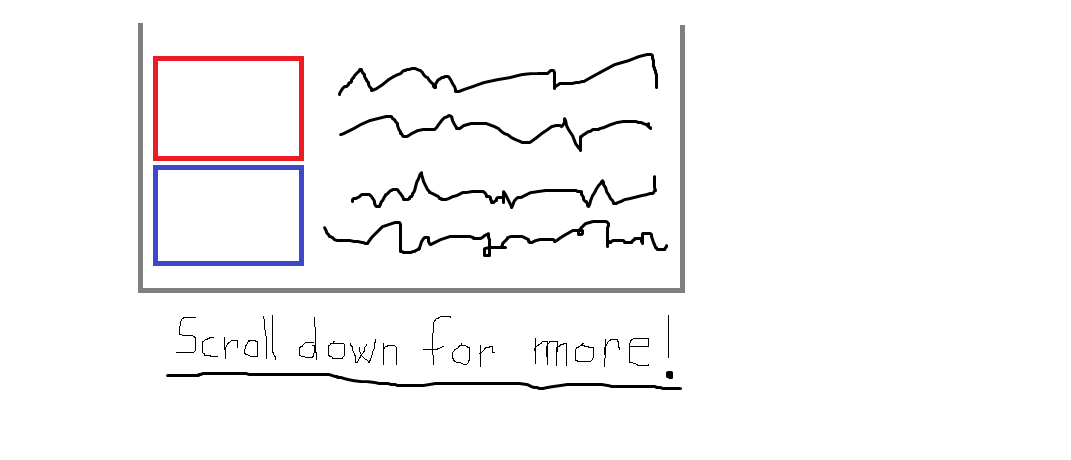 Scroll down for more!